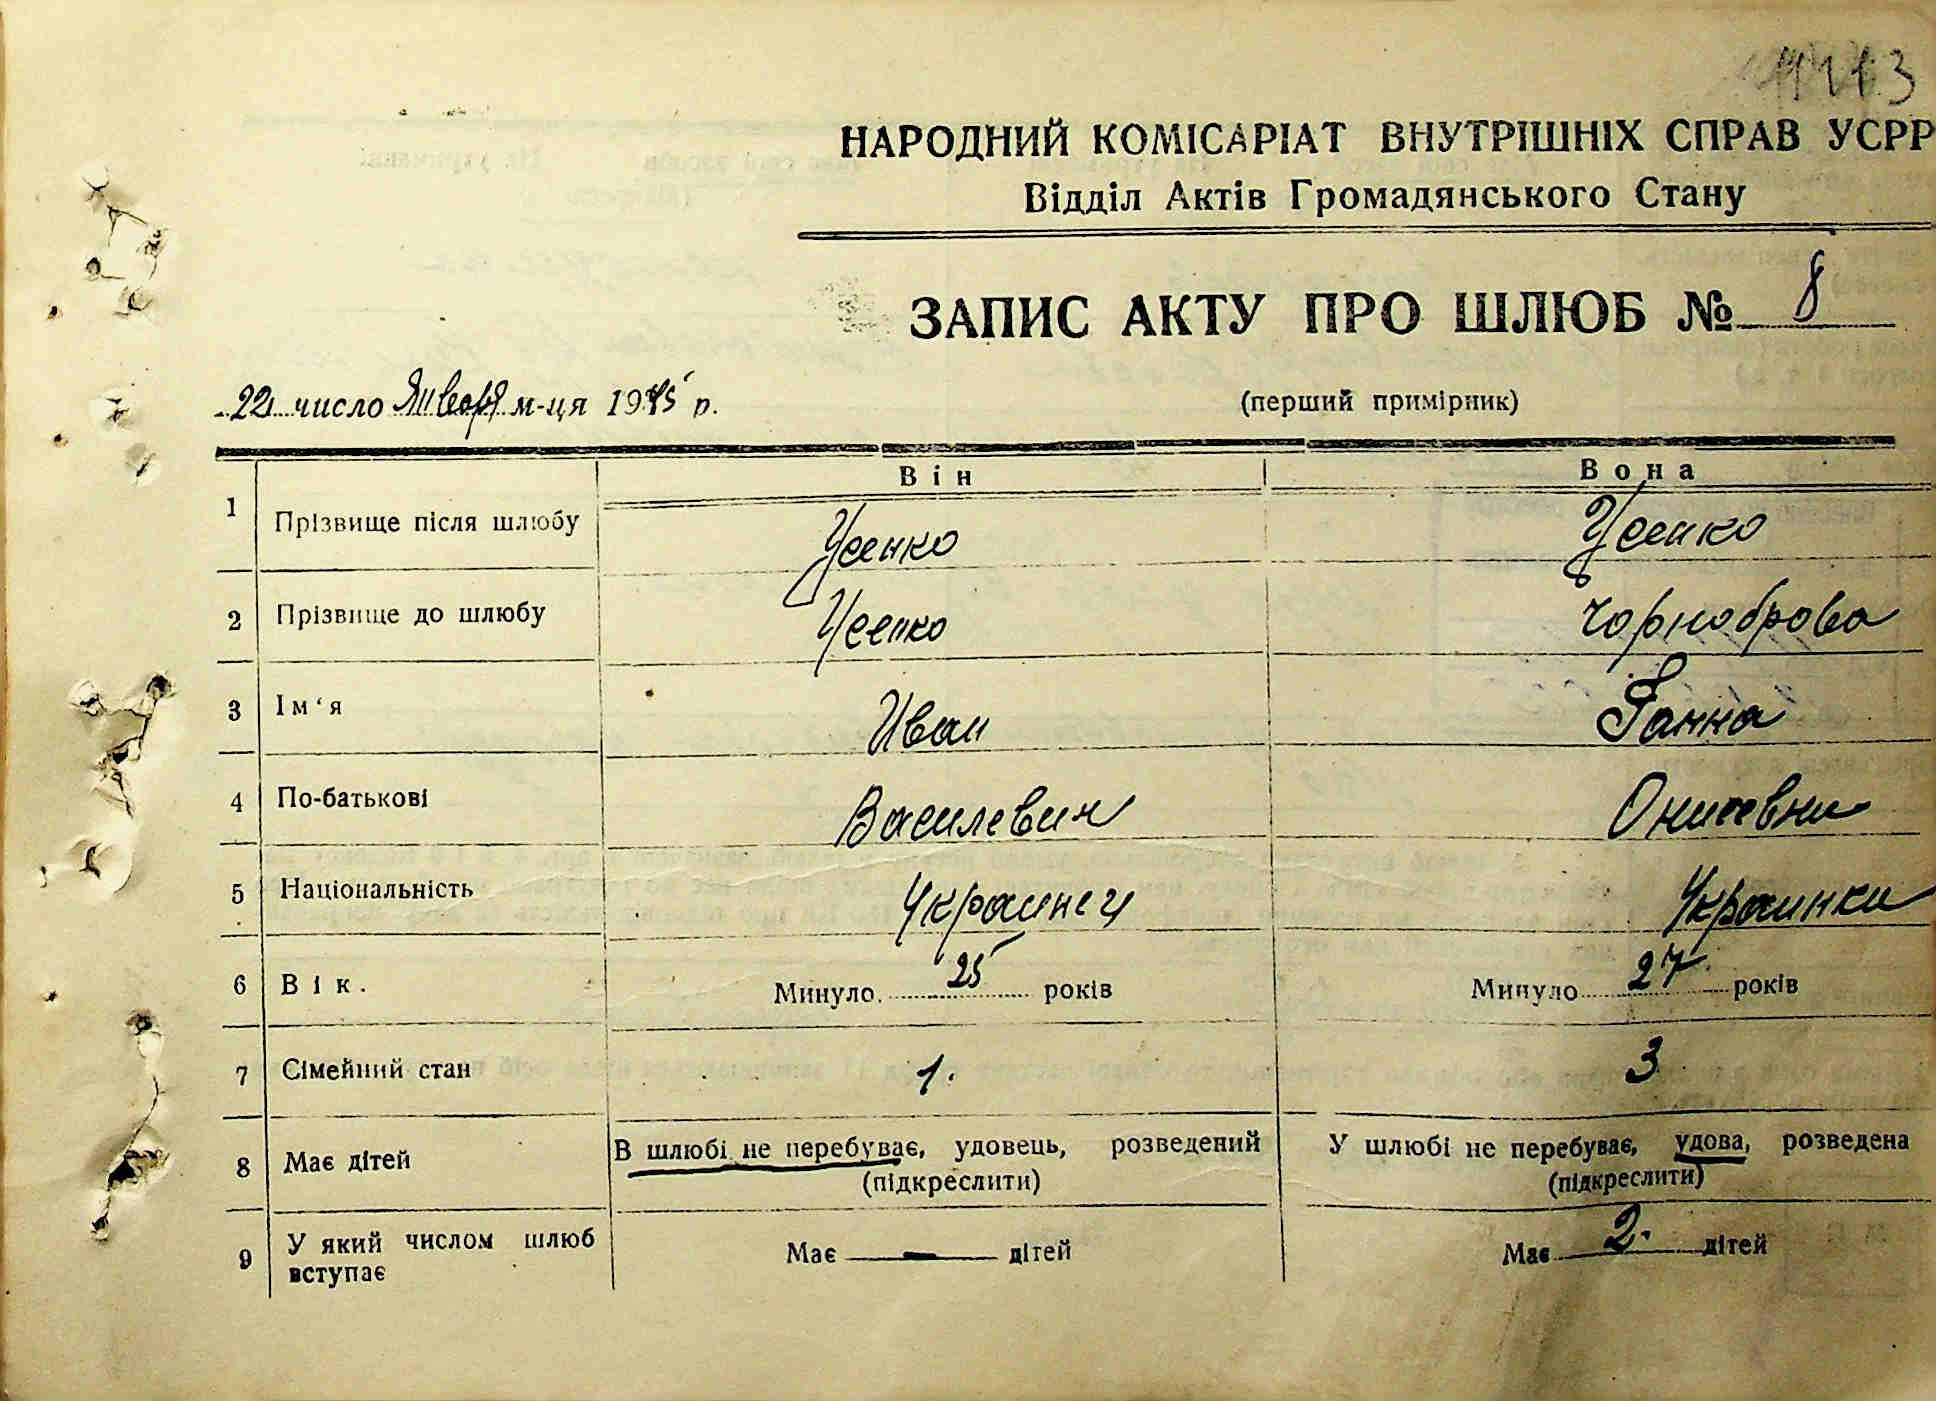 НАРОДНИЙ КОМІСАРІАТ ВНУТРІШНІХ СПРАВ УСРР
Відділ Актів Громадянського Стану
ЗАПИС АКТУ ПРО ШЛЮБ № 8
22 число Января м-ця 1945 р.
(перший примірник)
Він Вона
1 Прізвище після шлюбу Усенко Усенко
2 Прізвище до шлюбу Усенко Чорноброва
3 Ім'я Иван Ганна
4 По-батькові Василевич Онисевна
5 Національність Украинец Украинка
6 Вік. Минуло 25 років Минуло 27 років
7 Сімейний стан 1. 3
8 Має дітей В шлюбі не перебуває, удовець, розведений (підкреслити) У шлюбі не перебуває, удова, розведена (підкреслити)
9 У який числом шлюб вступає Має — дітей Має 2. дітей